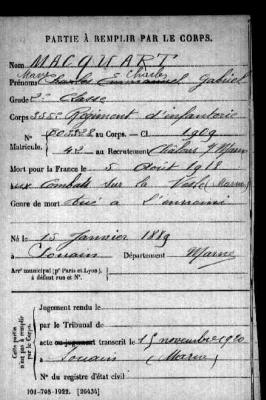 PARTIE À REMPLIR PAR LE CORPS.
Nom MACQUART
Prénoms Charles Emmanuel Gabriel
Grade 2e classe
Corps Régiment d'infanterie
N° au Corps. — Cl. 1909
Matricule. 42 au Recrutement Châlons s/ Marne
Mort pour la France le 5 Août 1918
aux Combats sur la Vesle (Marne)
Genre de mort tué à l'ennemi
Né le 15 Janvier 1889
à Souain Département Marne
Arrt municipal (pr Paris et Lyon),
à défaut rue et N°.
Cette partie n'est pas à remplir par le Corps.
Jugement rendu le
par le Tribunal de
acte ou jugement transcrit le 15 novembre 1920
à Souain (Marne)
N° du registre d'état civil
101-708-1922. [26434]